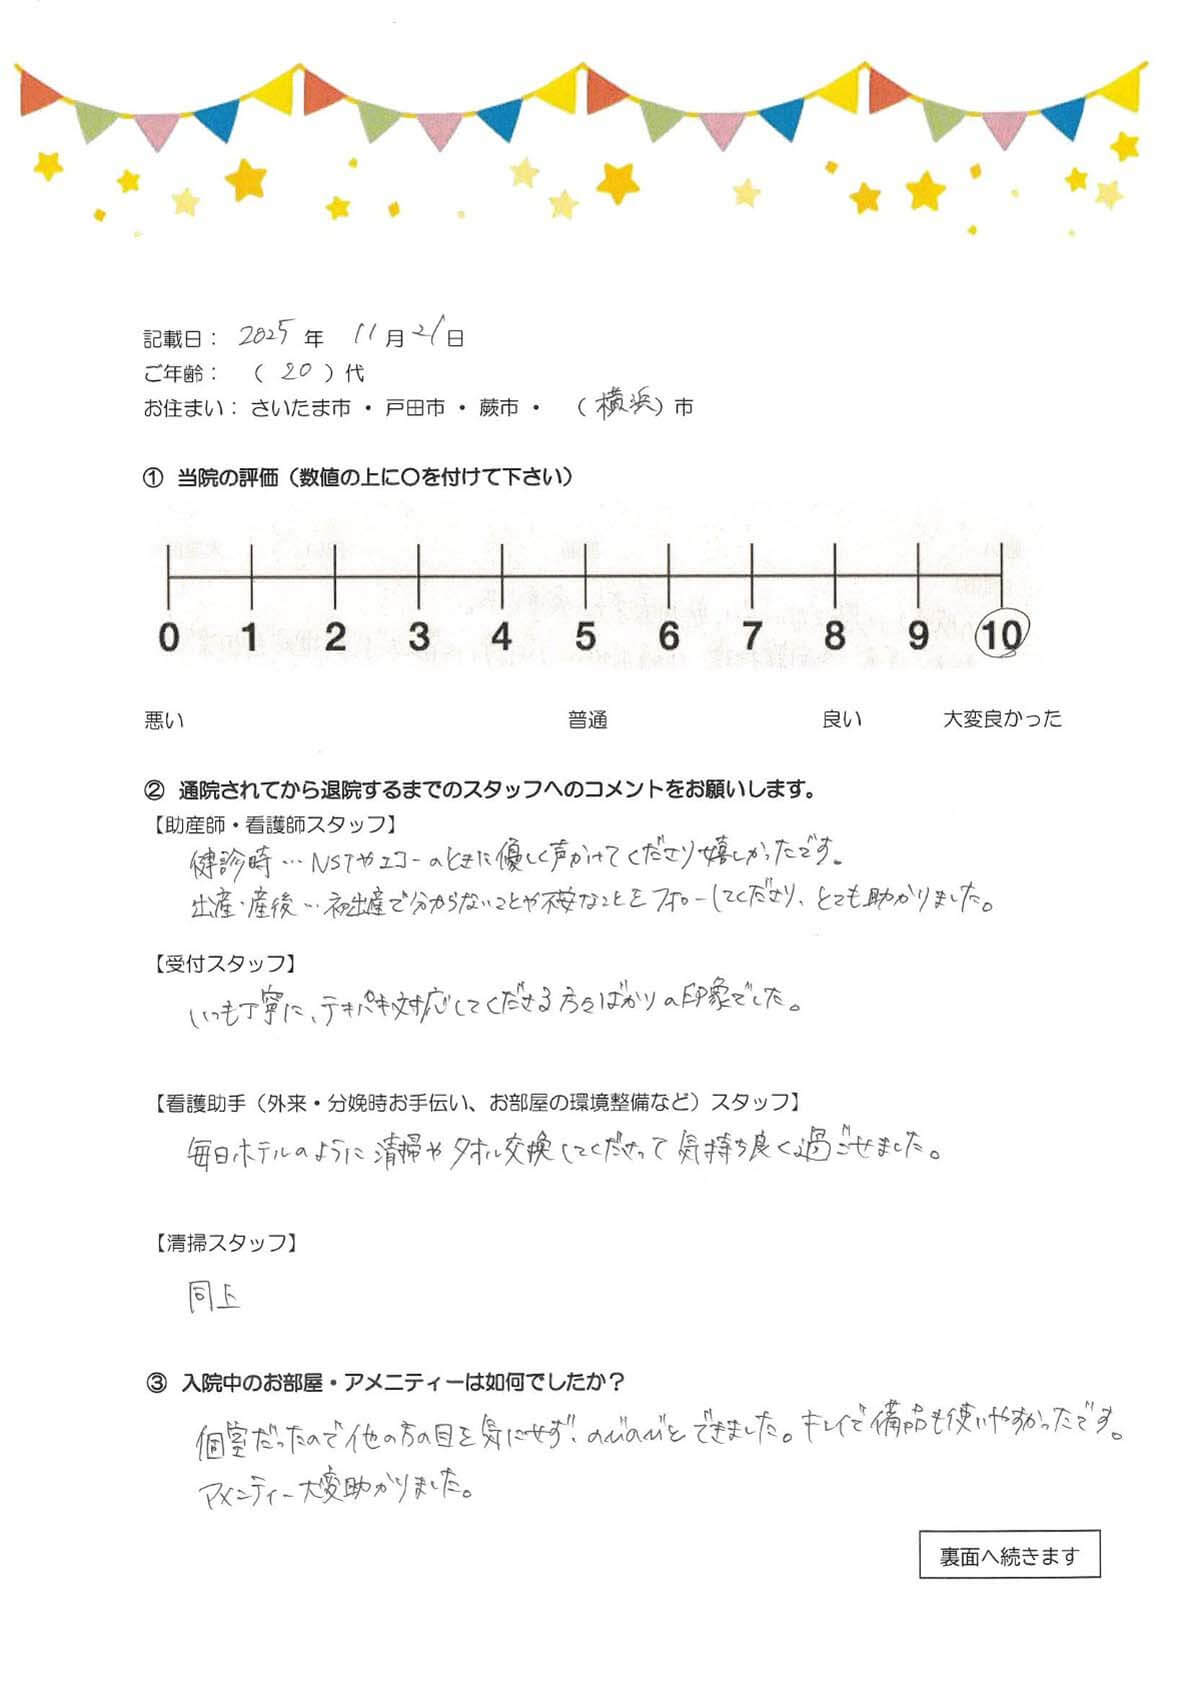 記載日： 2025 年 11 月 21 日
ご年齢： （ 20 ）代
お住まい： さいたま市 ・ 戸田市 ・ 蕨市 ・ （横浜）市
① 当院の評価（数値の上に〇を付けて下さい）
0 1 2 3 4 5 6 7 8 9 10
悪い 普通 良い 大変良かった
② 通院されてから退院するまでのスタッフへのコメントをお願いします。
【助産師・看護師スタッフ】
健診時…NSTやエコーのときに優しく声かけてくださり嬉しかったです。
出産・産後…初出産で分からないことや不安なことをフォローしてくださり、とても助かりました。
【受付スタッフ】
いつも丁寧に、テキパキ対応してくださる方々ばかりの印象でした。
【看護助手（外来・分娩時お手伝い、お部屋の環境整備など）スタッフ】
毎日ホテルのように清掃やタオル交換してくださって気持ち良く過ごせました。
【清掃スタッフ】
同上
③ 入院中のお部屋・アメニティーは如何でしたか？
個室だったので他の方の目を気にせず、のびのびとできました。キレイで備品も使いやすかったです。
アメニティー大変助かりました。
裏面へ続きます